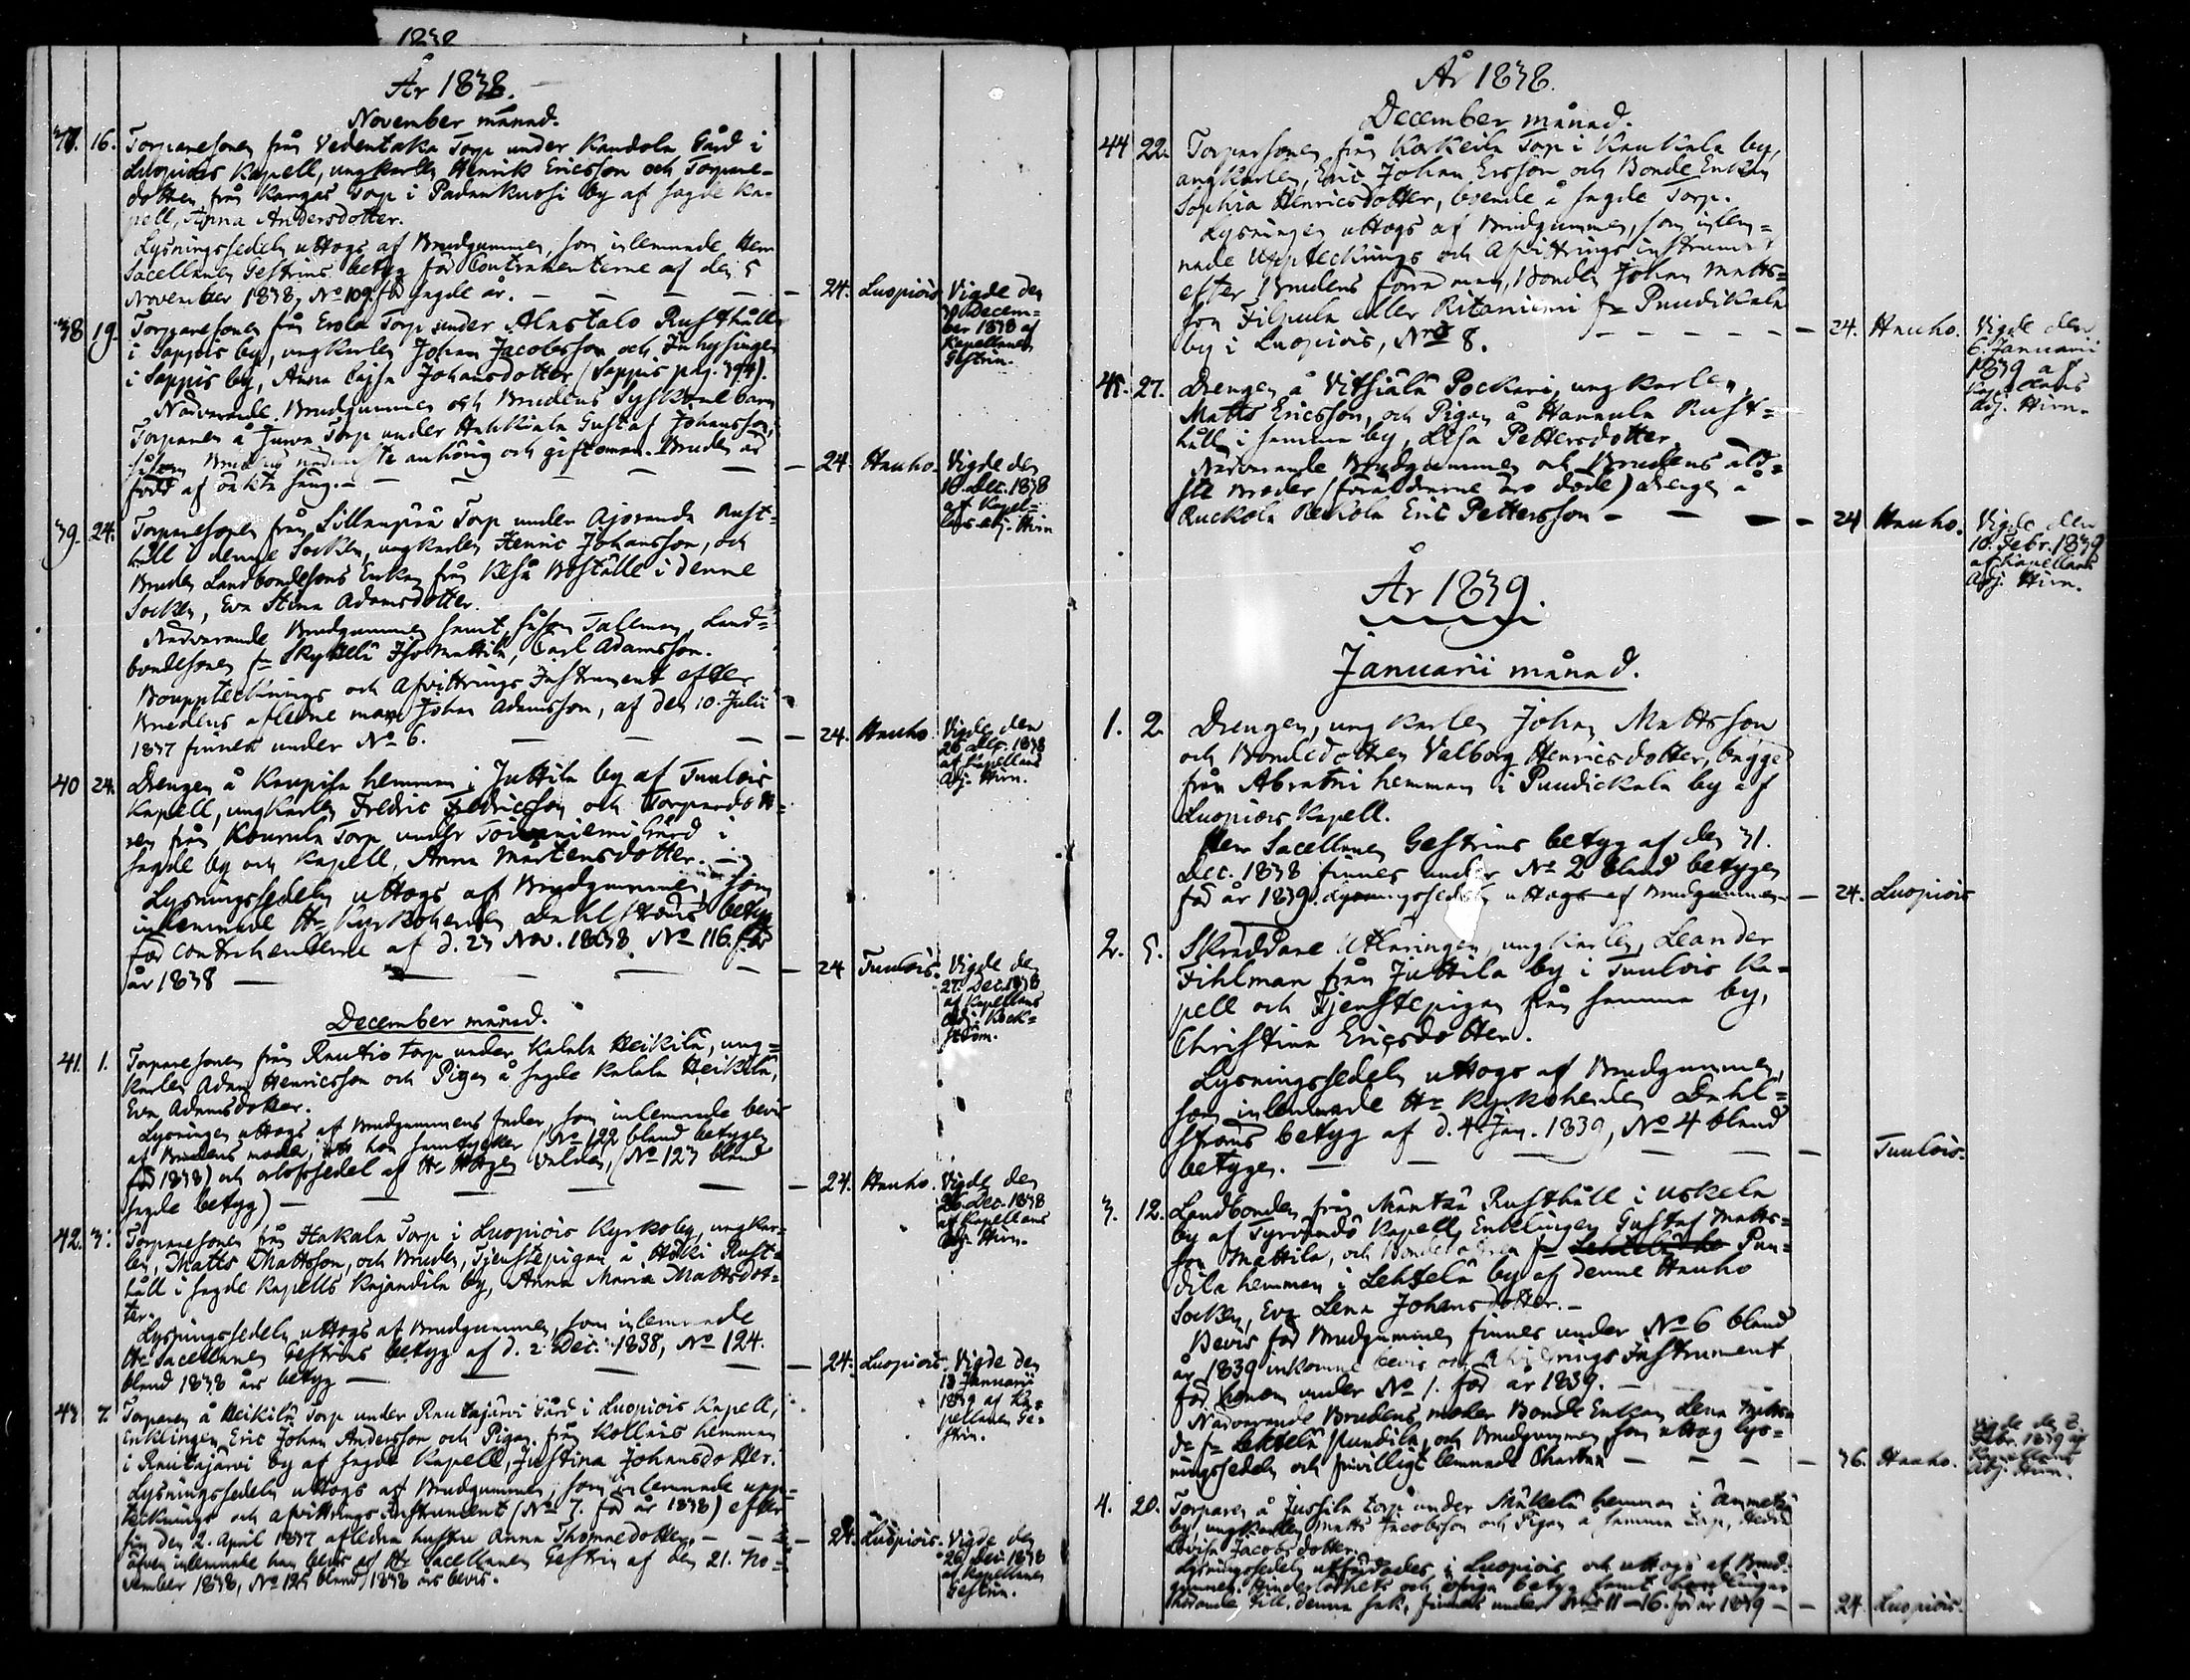 1838
År 1838.
November månad.
37. 16. Torparesonen från Vedentaka Torp under Kandola Gård i
Luopiois Kapell, ungkarlen Henrik Ericsson och Torpare-
dottren från Kangas Torp i Padankuosi by af sagde Ka-
pell, Anna Andersdotter.
Lysningssedeln uttogs af Brudgummen, som inlemnade Herr
Sacellanen Gestrins betyg för Contrahenterne af den 5
November 1838, No 109. för sagde år. — 24. Luopiois
Vigde den
Decem-
ber 1838 af
Kapellanen
Gestrin.
38 19. Torparesonen från Erola Torp under Alastalo Rusthåll
i Sappis by, ungkarlen Johan Jacobsson och Inhysingen
i Sappis by, Anna Cajsa Johansdotter (Sappis pag. 394).
Närvarande Brudgummen och Brudens Syskonebarn
Torparen å Juva Torp under Hahkiala Gustaf Johansson,
såsom Brudens närmaste anhörig och giftoman. Bruden är
född af oäkta säng. — 24. Hauho.
Vigde den
18. Dec. 1838
af Kapel-
lans adj. Hirn
39. 24. Torparesonen från Sillanpää Torp under Ajoranda Rust-
håll i denne Socken, ungkarlen Henric Johansson, och
Bruden Landbondesons Enkan från Keså Boställe i denne
Socken, Eva Stina Adamsdotter.
Närvarande Brudgummen samt, såsom Talleman, Land-
bondesonen fr Skyttelä Iso Mattila, Carl Adamsson.
Bouppteknings och Afvittrings Instrument efter
Brudens aflidne man Johan Adamsson, af den 10. Julii
1837 finnes under No 6. — 24. Hauho.
Vigde den
26 Dec. 1838
af Kapellans
Adj. Hirn.
40 24. Drengen å Kaupisa hemman i Juttila by af Tuulois
Kapell, ungkarlen Fredric Fredricsson och Torparedott-
ren från Kourula Torp under Toivaniemi Gård i
sagde by och Kapell, Anna Mårtensdotter. —
Lysningssedeln uttogs af Brudgummen, som
inlemnade Hr Kyrkoherden Dahlströms betyg
för contrahenterne af d. 23 Nov. 1838. No 116. för
år 1838 — 24 Tuulois.
Vigde den
27. Dec. 1838
af Kapellans
Adj. Keck-
ström.
December månad.
41. 1. Torparesonen från Rautio torp under Kalala Heikilä, ung-
karlen Adam Henricsson och Pigan å sagde Kalala Heikilä,
Eva Adamsdotter.
Lysningen uttogs af Brudgummens fader, som inlemnade bevis
af Brudens moder, att hon samtycker (No 122 bland betygen
för 1838) och orlofssedel af Hr Valdén, (No 123 bland
sagde betyg) — 24. Hauho.
Vigde den
26 Dec. 1838
af Kapellans
Adj. Hirn.
42. 3. Torparesonen från Hakala Torp i Luopiois Kyrkoby, ungkar-
len, Matts Mattsson, och Bruden, Tjenstepigan å Hoki Rust-
håll i sagde Kapells Kajandila by, Anna Maria Mattsdot-
ter.
Lysningssedeln uttogs af Brudgummen, som inlemnade
Hr Sacellanen Gestrins betyg af d. 2 Dec. 1838, No 124.
bland 1838 års betyg — 24. Luopiois.
Vigde den
13 Januarii
1839 af Ka-
pellanen Ge-
strin.
43 7. Torparen å Heikilä Torp under Rautajärvi Gård i Luopiois Kapell,
Enklingen Eric Johan Andersson och Pigan från Kollars hemman
i Rautajärvi by af sagde Kapell, Justina Johansdotter.
Lysningssedeln uttogs af Brudgummen, som inlemnade upp-
tecknings och afvittrings Instrument (No 7. för år 1838) efter
sin den 2. April 1837 aflidna hustru Anna Thomasdotter, —
äfven inlemnade han bevis af Hr Sacellanen Gestrin af den 21. No-
vember 1838, No 125 bland 1838 års bevis. 24. Luopiois.
Vigde den
26 Dec. 1838
af Kapellanen
Gestrin.
År 1838.
December månad.
44 22. Torparsonen från Korkeila Torp i Kankala by,
ungkarlen, Eric Johan Ersson och Bonde Enkan
Sophia Henricsdotter, boende å sagde Torp.
Lysningen uttogs af Brudgummen, som inlem-
nade Upptecknings och Afvittringsinstrument
efter Brudens förra man, Bonden Johan Matts-
son Filpula eller Ritaniemi fr Puudikala
by i Luopiois, Nro 8. — 24. Hauho.
Vigde den
6. Januarii
1839 af
Kapellans
Adj. Hirn.
45. 27. Drengen å Vitsiälä Pockari, ungkarlen,
Matts Ericsson, och Pigan å Hannula Rust-
håll i samma by, Lisa Pettersdotter.
Närvarande Brudgummen och Brudens äld-
ste Broder (föräldrarne äro döde) drengen å
Ruckola Reckola Eric Pettersson — 24 Hauho.
Vigde den
10. Febr. 1839
af Kapellans
Adj. Hirn.
År 1839.
Januarii månad.
1. 2. Drengen, ungkarlen Johan Mattsson
och Bondedottren Valborg Henricsdotter, bägge
från Abratni hemman i Puudickala by af
Luopiois Kapell.
Herr Sacellanen Gestrins betyg af den 31.
Dec. 1838 finnes under No 2 bland betygen
för år 1839. Lysningssedeln uttogs af Brudgummen — 24. Luopiois
2. 5. Skräddare Utläringen, ungkarlen, Leander
Fihlman från Juttila by i Tuulois Ka-
pell och Tjenstepigan från samma by,
Christina Ericsdotter.
Lysningssedeln uttogs af Brudgummen,
som inlemnade Hr Kyrkoherden Dahl-
ströms betyg af d. 4. Jan. 1839, No 4 bland
betygen. — Tuulois.
3. 12. Landbonden från Mäntä Rusthåll i Uskela
by af Tyrvändö Kapell, Enklingen Gustaf Matts-
son Mattila, och Bondedottren fr Pun-
dila hemman i Lehtelä by af denne Hauho
Socken, Eva Lena Johansdotter. —
Bevis för Brudgummen finnes under No 6 bland
år 1839 inkomne bevis och Afvittrings Instrument
för honom under No 1. för år 1839. —
Närvarande Brudens moder Bonde Enkan Lena Matts-
dr fr Lehtelä Pundila, och Brudgummen, som uttog lys-
ningssedeln och frivilligt lemnade Chartan — 36. Hauho.
Vigde den 2.
Febr. 1839 af
Kapellans
Adj. Hirn.
4. 20. Torparen å Jussila torp under Mäkelä hemman i Ämmätsä
by, ungkarlen Matts Jacobsson och Pigan å samma torp, Hedda
Lovisa Jacobsdotter.
Lysningssedeln utfärdades i Luopiois och uttogs af Brud-
gummen. Hinderlöshets och öfriga betyg samt
hörande till denna sak, finnas under Nris 11—16. för år 1839 — 24. Luopiois.